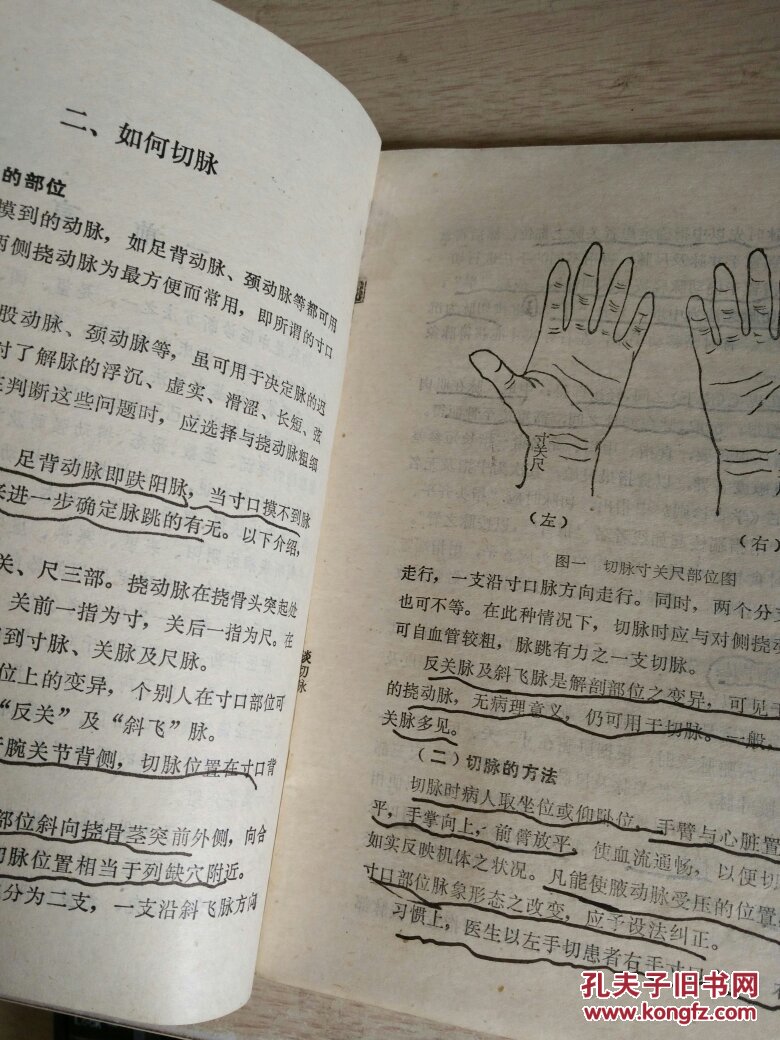 二、如何切脉
的部位
摸到的动脉，如足背动脉、颈动脉等都可用
两侧挠动脉为最方便而常用，即所谓的寸口
股动脉、颈动脉等，虽可用于决定脉的迟
时了解脉的浮沉、虚实、滑涩、长短、弦
在判断这些问题时，应选择与挠动脉粗细
足背动脉即趺阳脉，当寸口摸不到脉
来进一步确定脉跳的有无。以下介绍，
关、尺三部。挠动脉在挠骨头突起处
关前一指为寸，关后一指为尺。在
到寸脉、关脉及尺脉。
位上的变异，个别人在寸口部位可
“反关”及“斜飞”脉。
于腕关节背侧，切脉位置在寸口背
部位斜向挠骨茎突前外侧，向合
切脉位置相当于列缺穴附近。
分为二支，一支沿斜飞脉方向
谈切脉
寸关尺
（左）
（右）
图一 切脉寸关尺部位图
走行，一支沿寸口脉方向走行。同时，两个分支
也可不等。在此种情况下，切脉时应与对侧挠动
可自血管较粗，脉跳有力之一支切脉。
反关脉及斜飞脉是解剖部位之变异，可见于
的挠动脉，无病理意义，仍可用于切脉。一般，
关脉多见。
（二）切脉的方法
切脉时病人取坐位或仰卧位，手臂与心脏置
平，手掌向上，前膏放平，使血流通畅，以便切
如实反映机体之状况。凡能使腋动脉受压的位置
寸口部位脉象形态之改变，应予设法纠正。
习惯上，医生以左手切患者右手寸口
孔夫子旧书网
www.kongfz.com